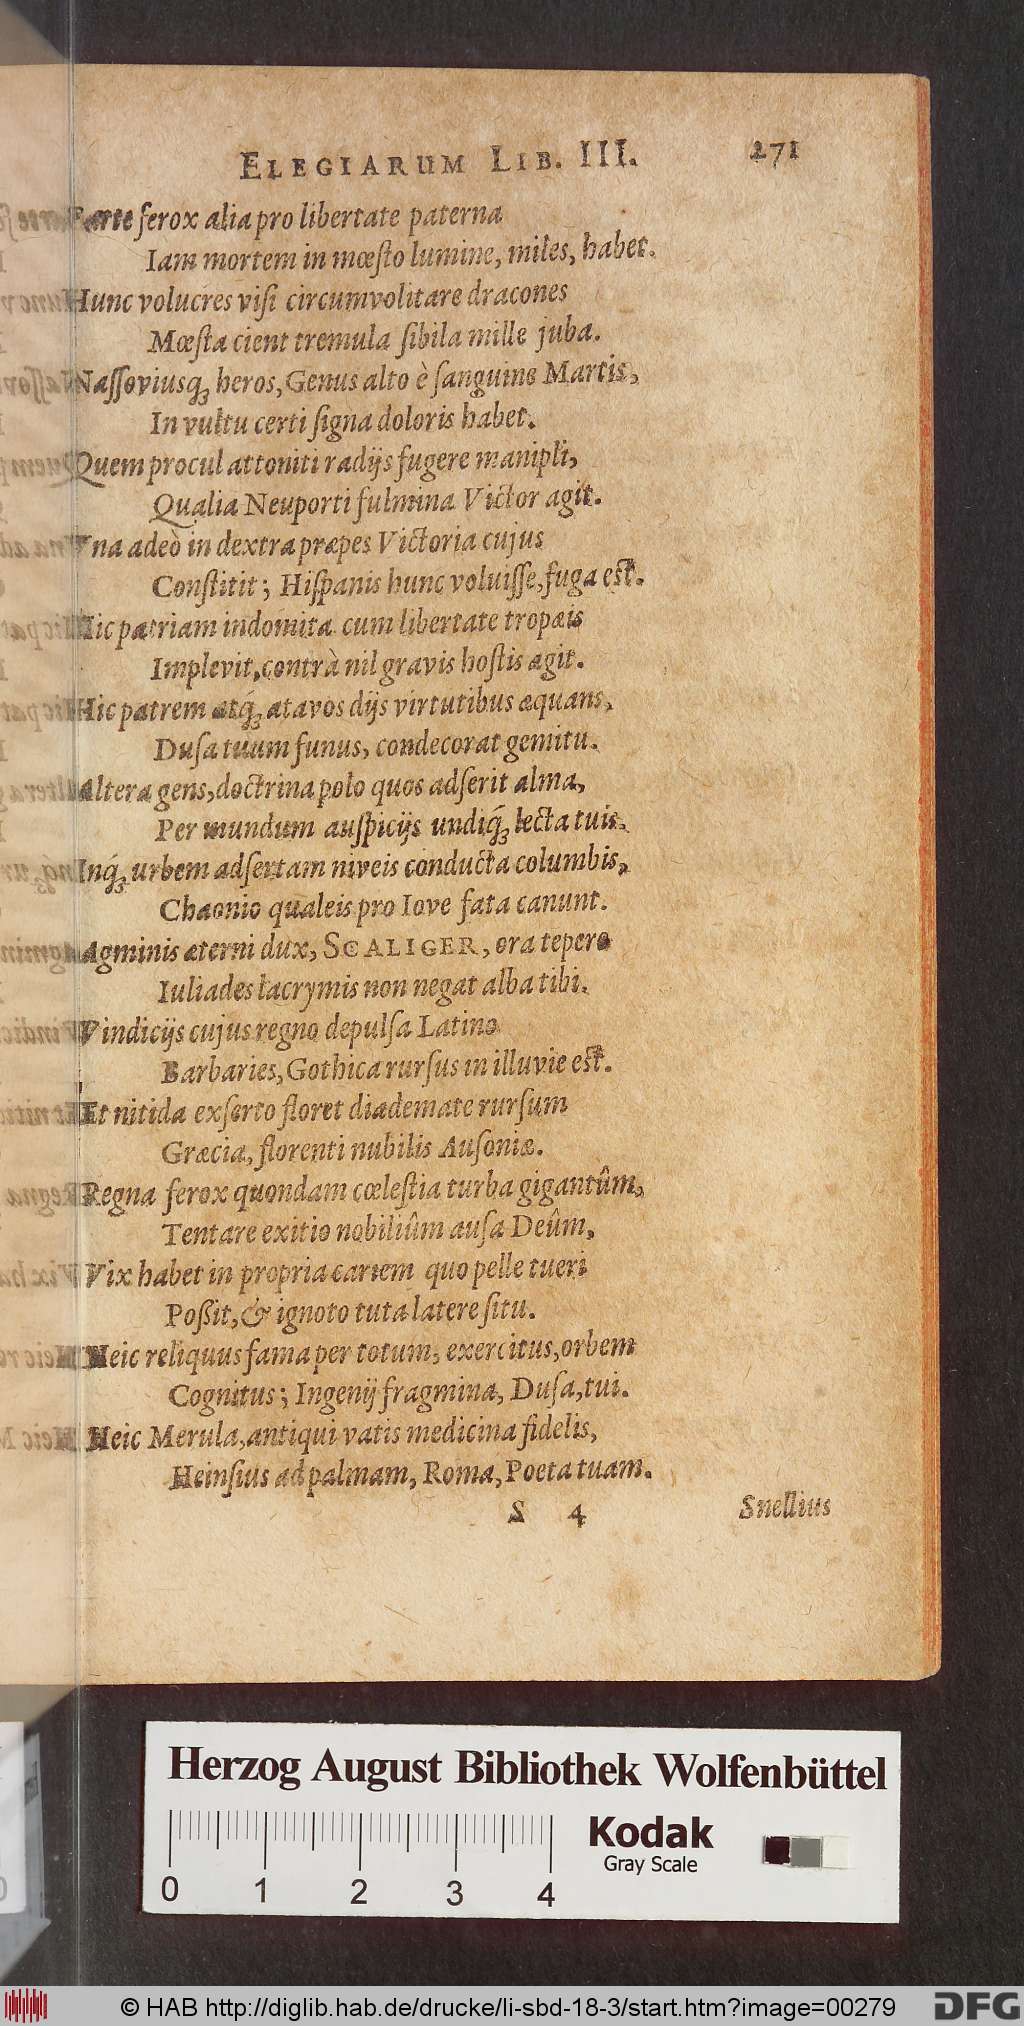 ELEGIARUM LIB. III. 271
Parte ferox alia pro libertate paterna
Iam mortem in mœſto lumine, miles, habet.
Hunc volucres viſi circumvolitare dracones
Mœſta cient tremula ſibila mille juba.
Naſſoviusq́ꝫ heros, Genus alto è ſanguine Martis,
In vultu certi ſigna doloris habet.
Quem procul attoniti radijs fugere manipli,
Qualia Neuporti fulmina Victor agit.
Vna adeò in dextra præpes Victoria cujus
Conſtitit; Hiſpanis hunc voluiſſe, fuga eſt.
Hic patriam indomita cum libertate tropæis
Implevit, contrà nil gravis hoſtis agit.
Hic patrem atq́ꝫ atavos dijs virtutibus æquans,
Duſa tuum funus, condecorat gemitu.
Altera gens, doctrina polo quos adſerit alma,
Per mundum auſpicijs undiq́ꝫ lecta tuis.
Inq́ꝫ urbem adſertam niveis conducta columbis,
Chaonio qualeis pro Iove fata canunt.
Agminis æterni dux, SCALIGER, ora tepere
Iuliades lacrymis non negat alba tibi.
Vindicijs cujus regno depulſa Latino
Barbaries, Gothica rurſus in illuvie eſt.
Et nitida exſerto floret diademate rurſum
Græcia, florenti nubilis Auſoniæ.
Regna ferox quondam cœleſtia turba gigantûm,
Tentare exitio nobiliûm auſa Deûm,
Vix habet in propria cariem quo pelle tueri
Poßit, & ignoto tuta latere ſitu.
Heic reliquus fama per totum, exercitus, orbem
Cognitus; Ingenij fragmina, Duſa, tui.
Heic Merula, antiqui vatis medicina fidelis,
Heinſius ad palmam, Roma, Poeta tuam.
S 4 Snellius
Herzog August Bibliothek Wolfenbüttel
Kodak
Gray Scale
0 1 2 3 4
© HAB http://diglib.hab.de/drucke/li-sbd-18-3/start.htm?image=00279
DFG